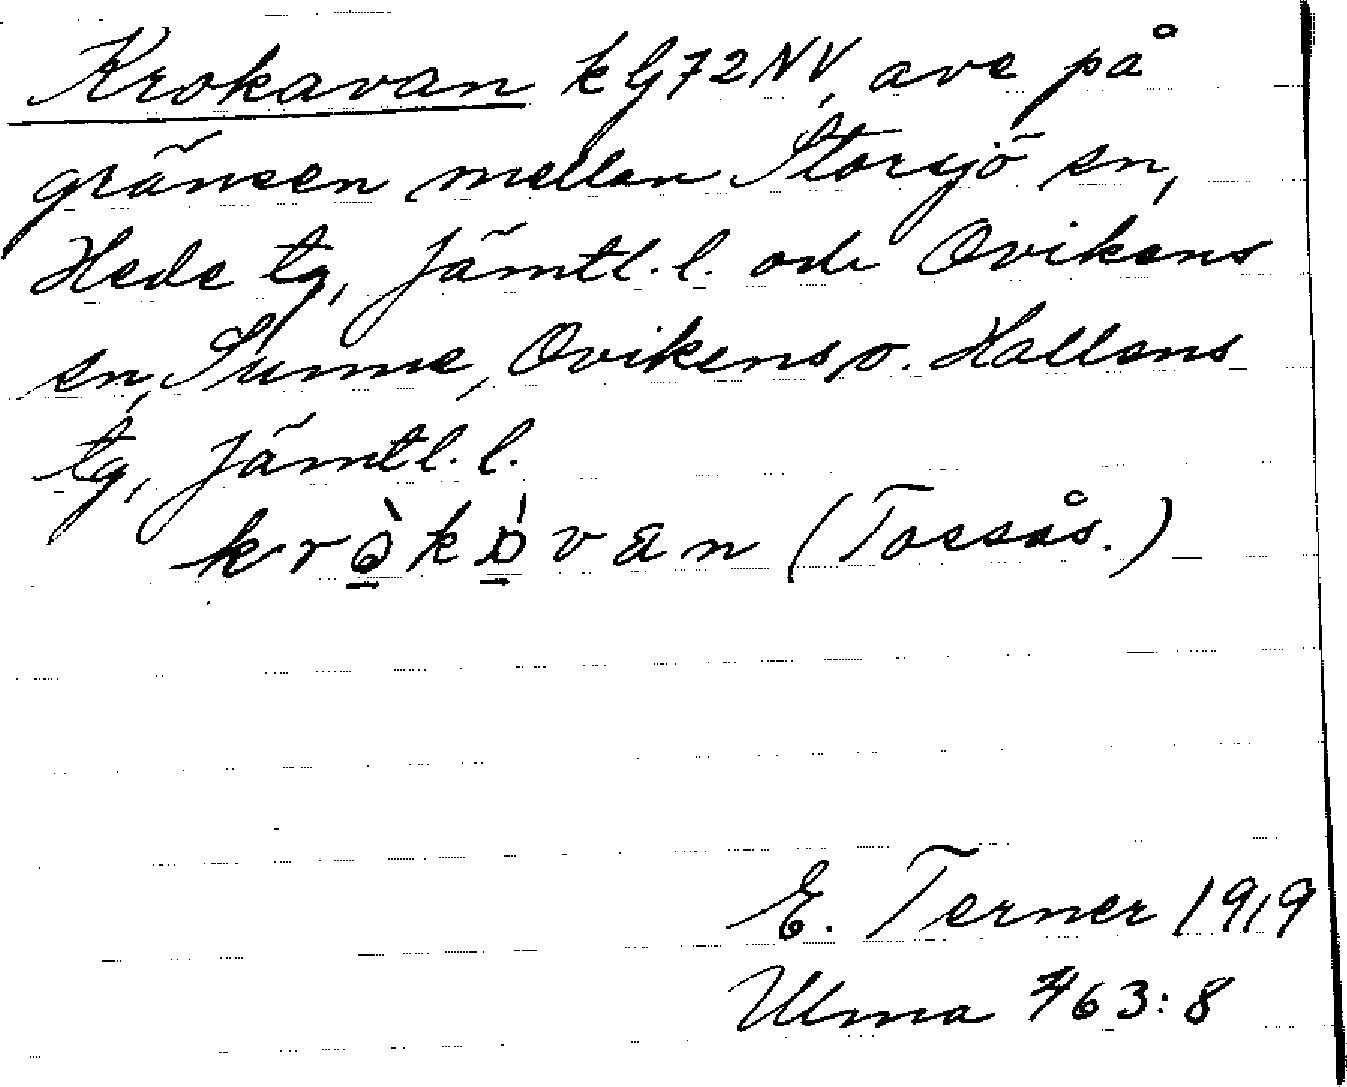 Krokavan kG72NV, ave på
gränsen mellan Storsjö sn,
Hede tg, Jämtl. l. och Ovikens
sn, Sunne, Ovikens o. Hallens
tg, Jämtl. l.
(Tossås.)
E. Terner 1919
Ulma 463:8